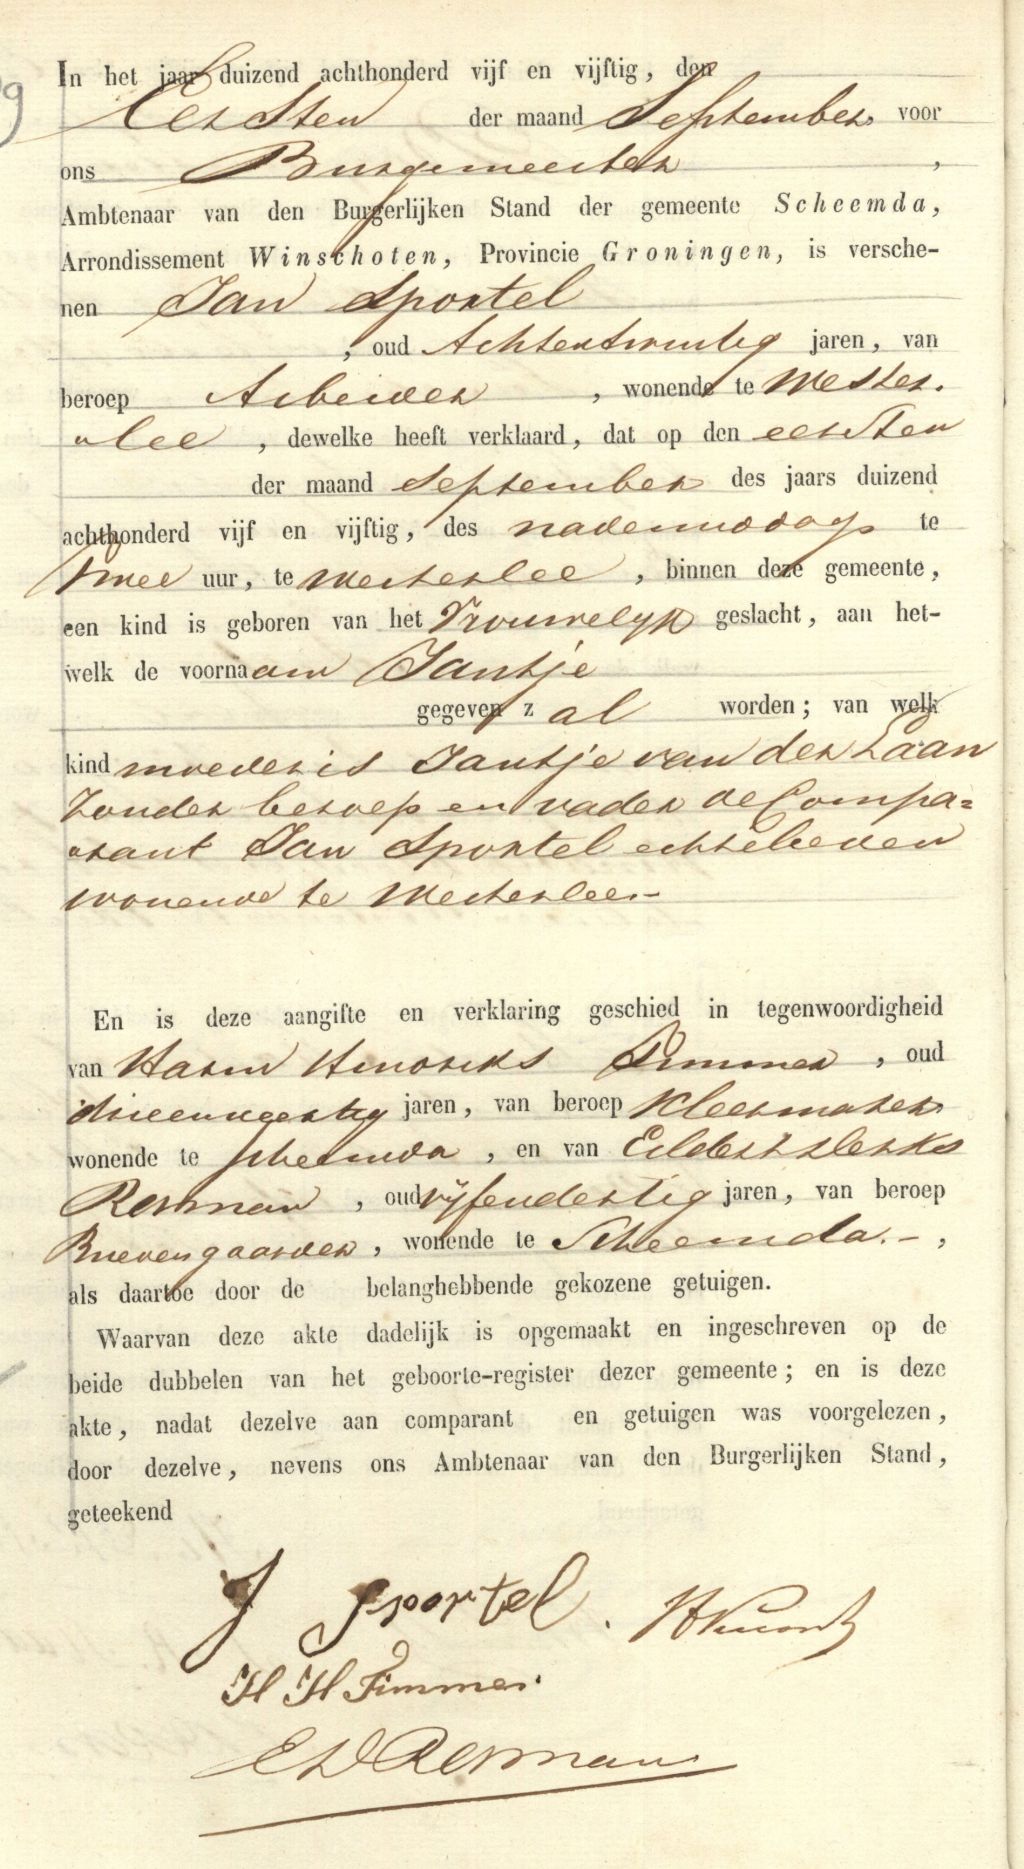 9
In het jaar duizend achthonderd vijf en vijftig, den
Eersten der maand September voor
ons Burgemeester ,
Ambtenaar van den Burgerlijken Stand der gemeente Scheemda,
Arrondissement Winschoten, Provincie Groningen, is versche-
nen Jan Sportel
, oud Achtentwintig jaren, van
beroep Arbeider , wonende te Wester-
lee , dewelke heeft verklaard, dat op den eersten
der maand September des jaars duizend
achthonderd vijf en vijftig, des nademiddags te
twee uur, te Westerlee , binnen deze gemeente,
een kind is geboren van het Vrouwelijk geslacht, aan het-
welk de voornaam Jantje
gegeven zal worden; van welk
kind moeder is Jantje van der Laan
zonder beroep en vader de Compa=
rant Jan Sportel echtelieden
wonende te Westerlee.-
En is deze aangifte en verklaring geschied in tegenwoordigheid
van Harm Hindriks Timmer , oud
jaren, van beroep Kleermaker
wonende te Scheemda , en van
, oud vijfendertig jaren, van beroep
, wonende te Scheemda.- ,
als daartoe door de belanghebbende gekozene getuigen.
Waarvan deze akte dadelijk is opgemaakt en ingeschreven op de
beide dubbelen van het geboorte-register dezer gemeente; en is deze
akte, nadat dezelve aan comparant en getuigen was voorgelezen,
door dezelve, nevens ons Ambtenaar van den Burgerlijken Stand,
geteekend
J Sportel.
H H Timmer.